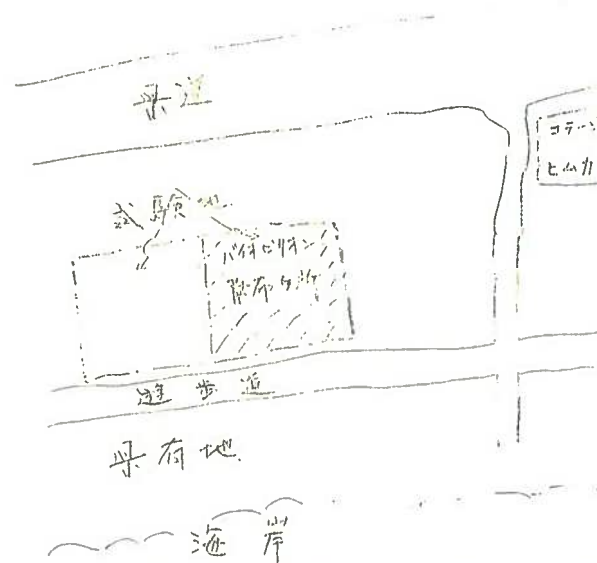 県道
コテージ
ヒムカ
試験地
バイオビリオン
散布
遊歩道
県有地
海岸